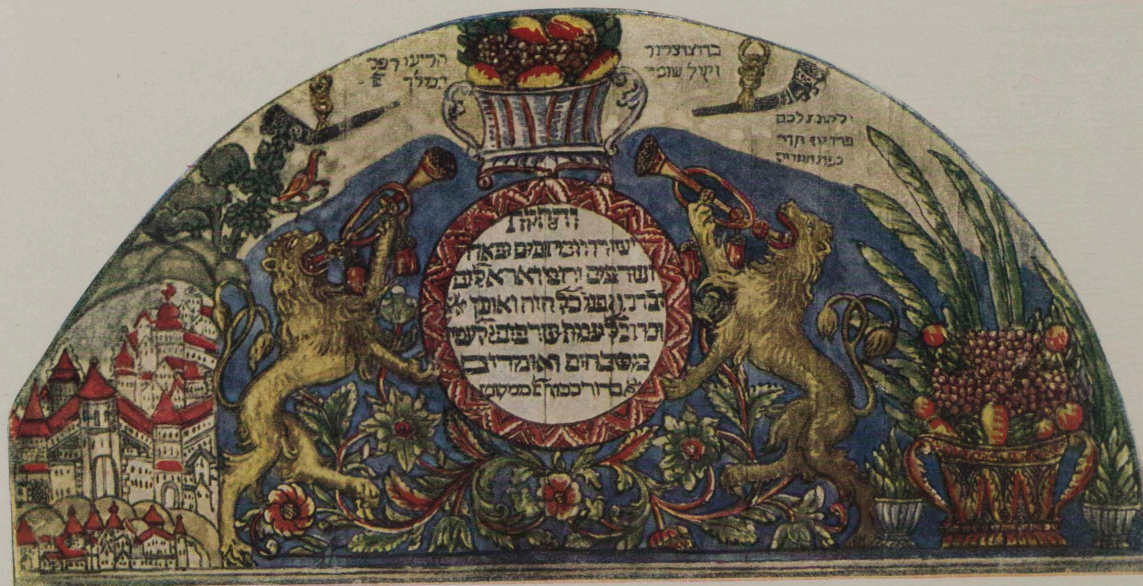 בחצוצרות
וקול שופר
הריעו לפני
המלך
לכם
פרי עץ הדר
כפת תמרים
והחיות
ישוררו וכרובים יפארו
ושרפים ירונו ואראלים
יברכו פני כל חיה ואופן
וכרוב לעמת שרפים
משבחים ואומרים
ברוך כבוד ממקומו